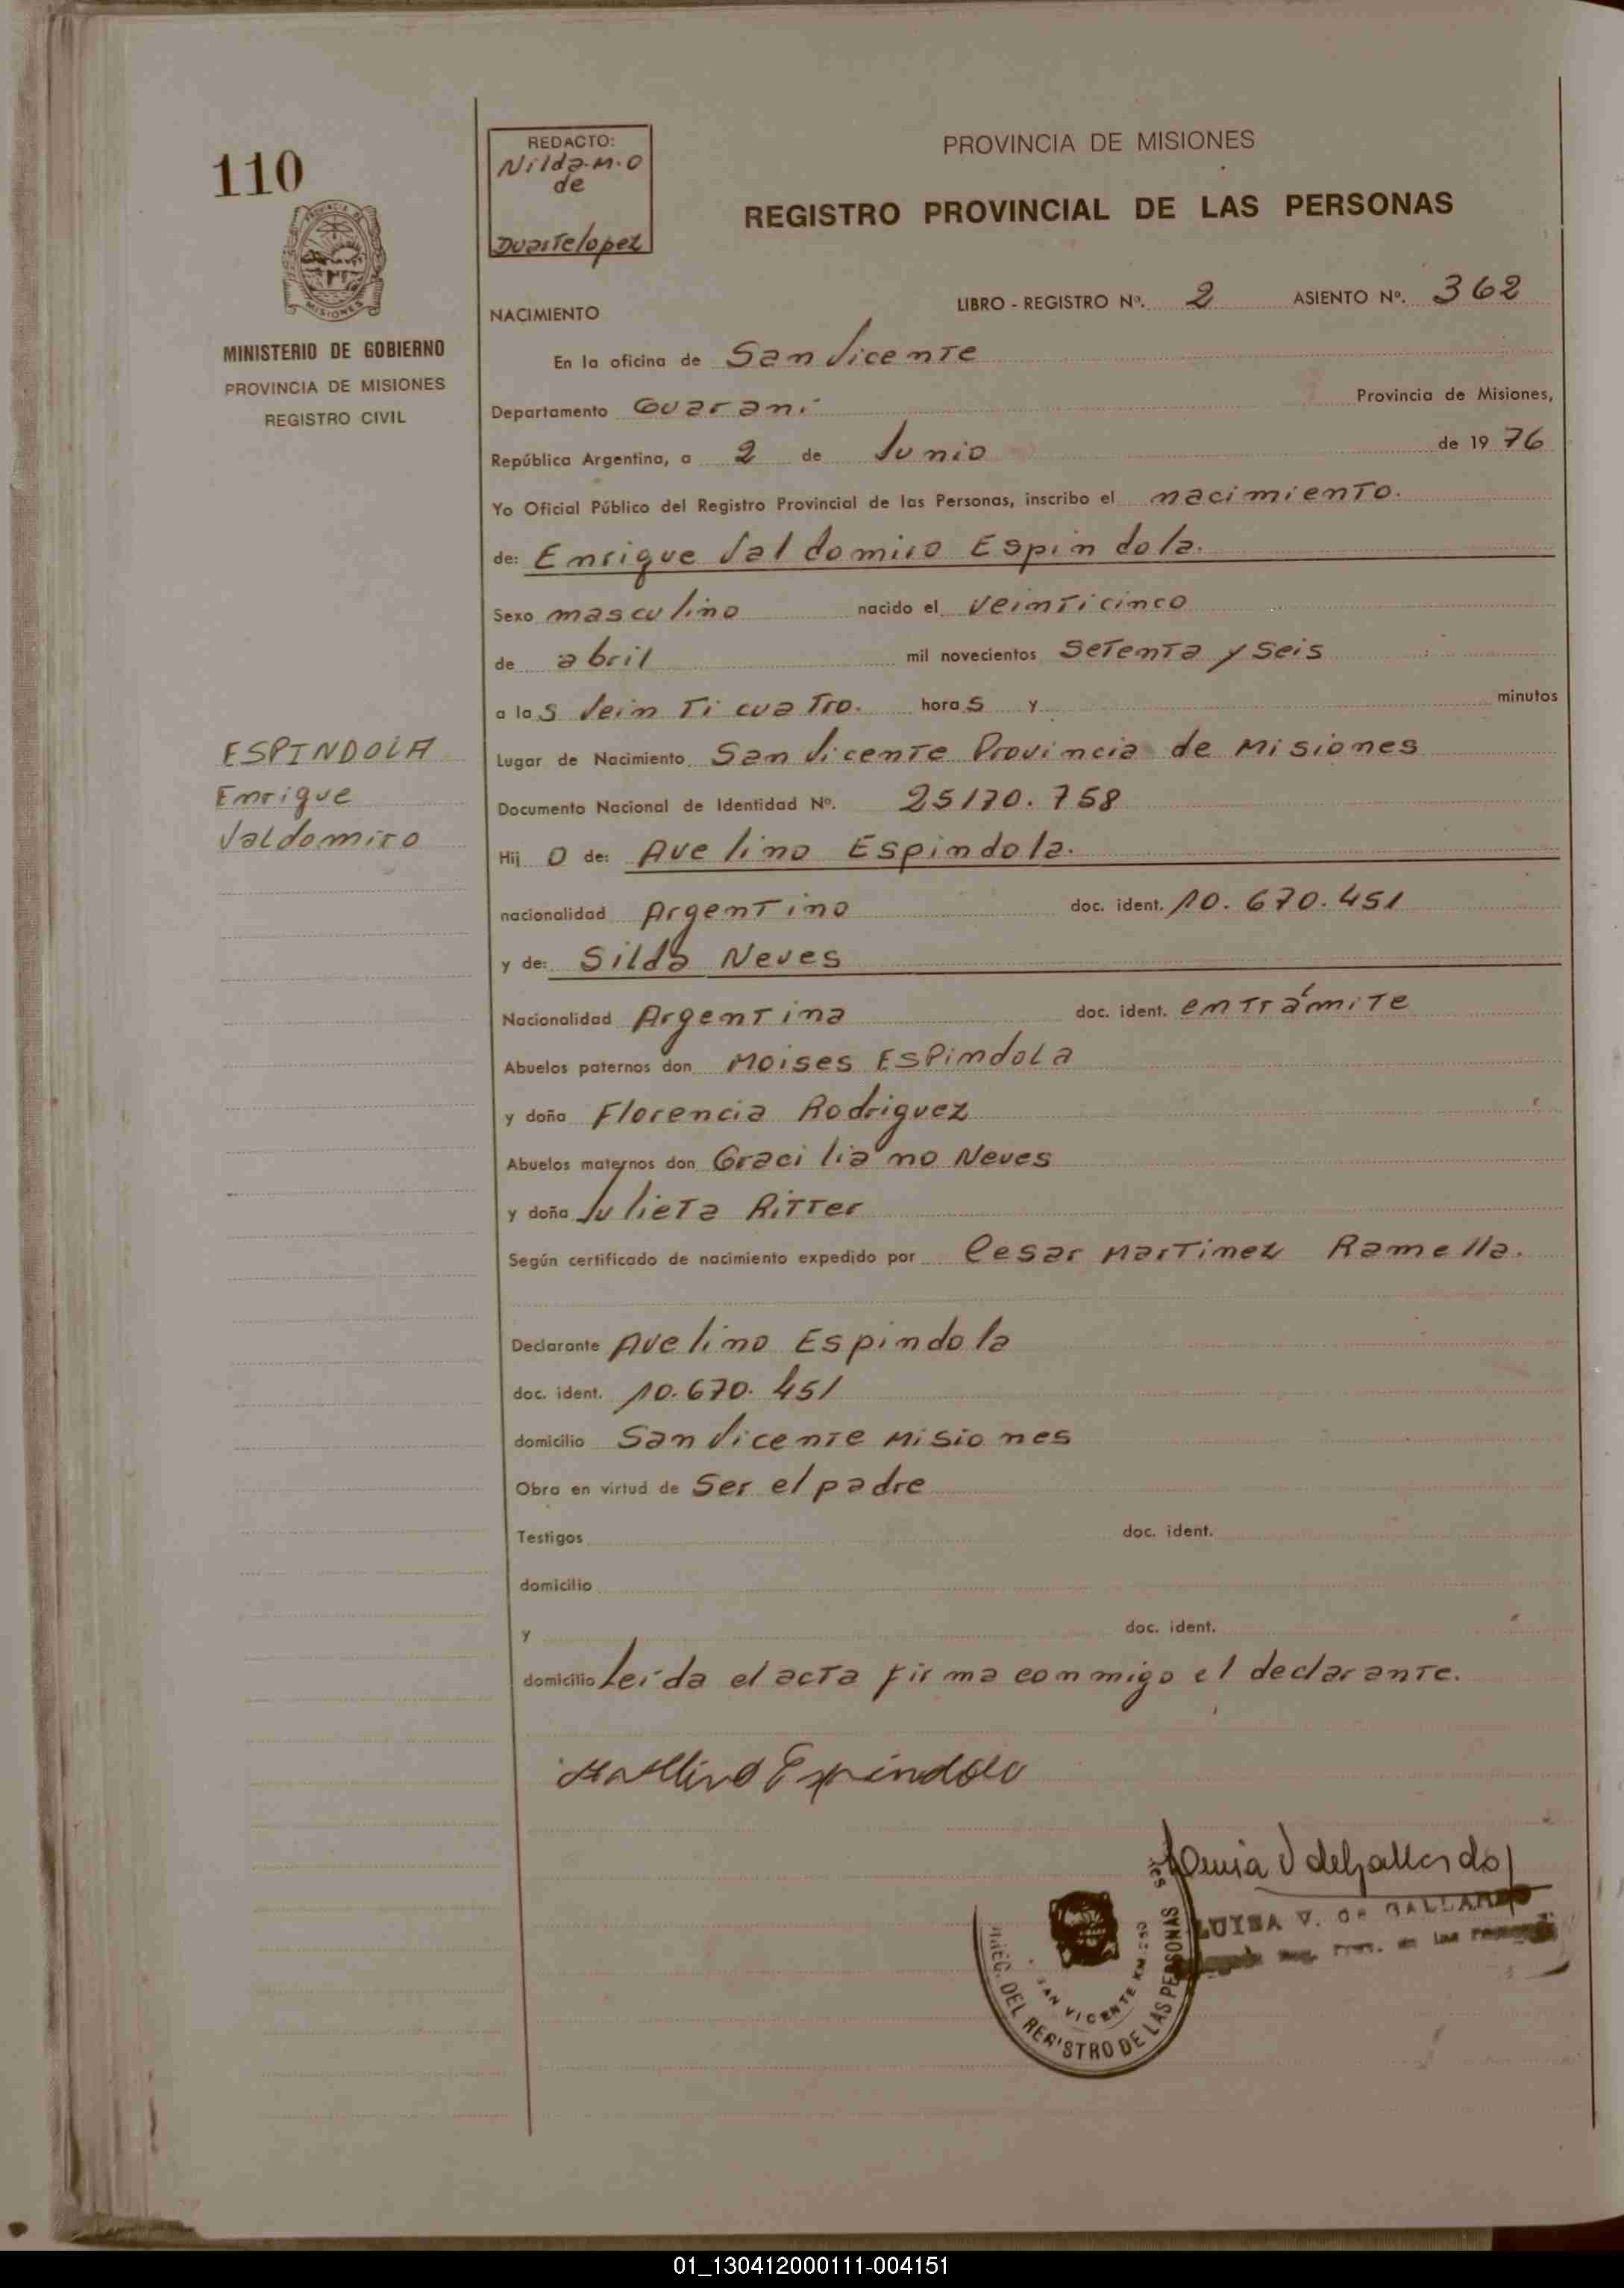 110
REDACTO:
Nilda.M.O
de
Duartelopez
PROVINCIA DE MISIONES
REGISTRO PROVINCIAL DE LAS PERSONAS
PROVINCIA DE
MISIONES
MINISTERIO DE GOBIERNO
PROVINCIA DE MISIONES
REGISTRO CIVIL
LIBRO - REGISTRO Nº. 2 ASIENTO Nº. 362
NACIMIENTO
En la oficina de San Vicente
Departamento Guaraní Provincia de Misiones,
República Argentina, a 2 de Junio de 19 76
Yo Oficial Público del Registro Provincial de las Personas, inscribo el nacimiento.
de: Enrique Valdomiro Espindola.
Sexo masculino nacido el veinticinco
de abril mil novecientos setenta y seis
a las veinticuatro. horas y minutos
ESPINDOLA
Enrique
Valdomiro
Lugar de Nacimiento San Vicente Provincia de Misiones
Documento Nacional de Identidad Nº. 25170.758
Hijo de: Avelino Espindola.
nacionalidad Argentino doc. ident. 10.670.451
y de: Silda Neves
Nacionalidad Argentina doc. ident. en trámite
Abuelos paternos don Moises ESPindoLa
y doña Florencia Rodriguez
Abuelos maternos don Graciliano Neves
y doña Julieta Ritter
Según certificado de nacimiento expedido por Cesar Martinez Ramella.
Declarante Avelino Espindola
doc. ident. 10.670.451
domicilio San Vicente Misiones
Obra en virtud de Ser el padre
Testigos doc. ident.
domicilio
y doc. ident.
domicilio Leída el acta firma conmigo el declarante.
Avellino Espindola
V de Gallardo
LUISA V. DE GALLARDO
Reg. Prov. de las
REG. DEL REGISTRO DE LAS PERSONAS
SAN VICENTE KM.
01_130412000111-004151